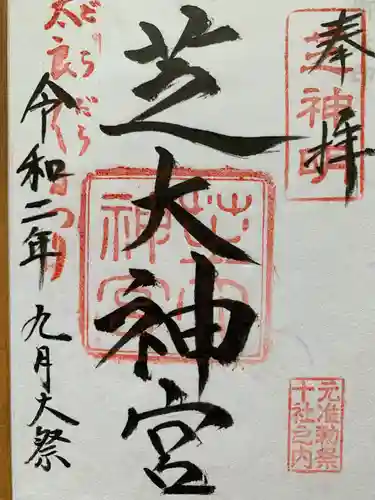 奉拝
芝神明
芝大神宮
芝大
神宮
元准勅祭
十社之内
だらだら
太良〱まつり
令和二年
九月大祭